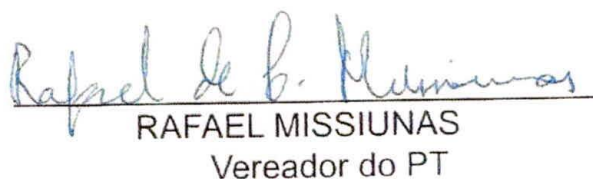 Rafael de C. Missiunas
RAFAEL MISSIUNAS
Vereador do PT